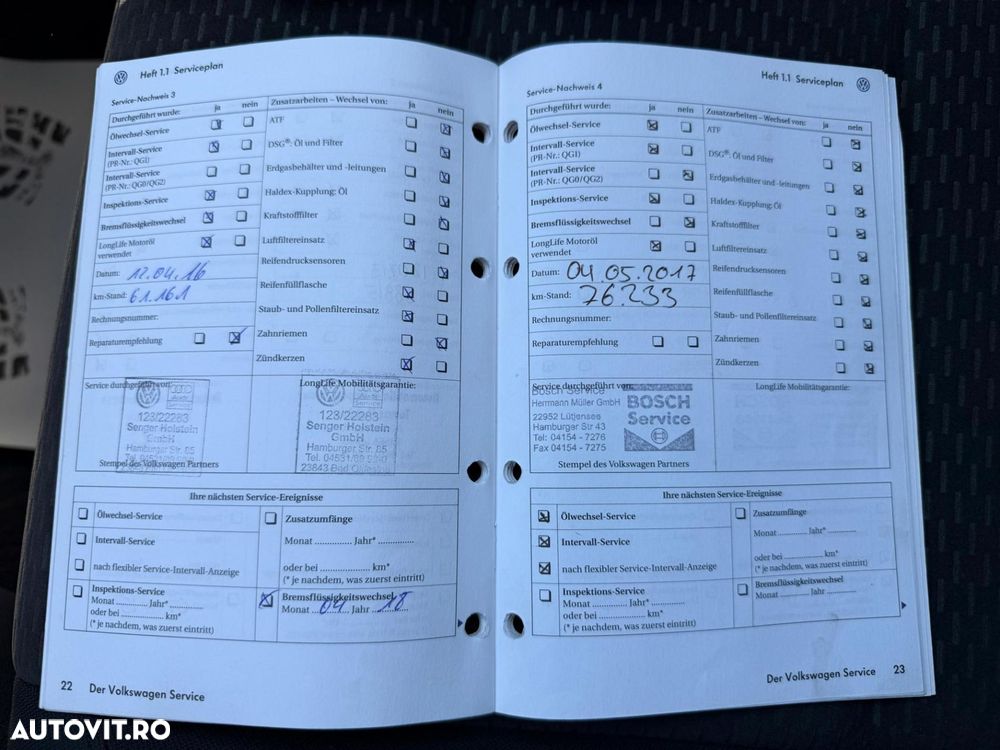 Heft 1.1 Serviceplan
Service-Nachweis 3
Durchgeführt wurde: ja nein
Ölwechsel-Service
Intervall-Service
(PR-Nr.: QG1)
Intervall-Service
(PR-Nr.: QG0/QG2)
Inspektions-Service
Bremsflüssigkeitswechsel
LongLife Motoröl
verwendet
Datum: 12.04.16
km-Stand: 61.161
Rechnungsnummer:
Reparaturempfehlung
Zusatzarbeiten – Wechsel von: ja nein
ATF
DSG®: Öl und Filter
Erdgasbehälter und -leitungen
Haldex-Kupplung: Öl
Kraftstofffilter
Luftfiltereinsatz
Reifendrucksensoren
Reifenfüllflasche
Staub- und Pollenfiltereinsatz
Zahnriemen
Zündkerzen
Service durchgeführt von:
123/22283
Senger Holstein
GmbH
Hamburger Str. 65
Stempel des Volkswagen Partners
LongLife Mobilitätsgarantie:
123/22283
Senger Holstein
GmbH
Hamburger Str. 65
23843 Bad
Ihre nächsten Service-Ereignisse
Ölwechsel-Service
Intervall-Service
nach flexibler Service-Intervall-Anzeige
Inspektions-Service
Monat ............ Jahr* ............
oder bei .................... km*
(* je nachdem, was zuerst eintritt)
Zusatzumfänge
Monat ............... Jahr* ...............
oder bei .................... km*
(* je nachdem, was zuerst eintritt)
Bremsflüssigkeitswechsel
Monat 04 Jahr 18
22 Der Volkswagen Service
Heft 1.1 Serviceplan
Service-Nachweis 4
Durchgeführt wurde: ja nein
Ölwechsel-Service
Intervall-Service
(PR-Nr.: QG1)
Intervall-Service
(PR-Nr.: QG0/QG2)
Inspektions-Service
Bremsflüssigkeitswechsel
LongLife Motoröl
verwendet
Datum: 04.05.2017
km-Stand: 76.233
Rechnungsnummer:
Reparaturempfehlung
Zusatzarbeiten – Wechsel von: ja nein
ATF
DSG®: Öl und Filter
Erdgasbehälter und -leitungen
Haldex-Kupplung: Öl
Kraftstofffilter
Luftfiltereinsatz
Reifendrucksensoren
Reifenfüllflasche
Staub- und Pollenfiltereinsatz
Zahnriemen
Zündkerzen
Service durchgeführt von:
Bosch Service
Herrmann Müller GmbH
22952 Lütjensee
Hamburger Str 43
Tel: 04154 - 7276
Fax 04154 - 7275
BOSCH
Service
Stempel des Volkswagen Partners
LongLife Mobilitätsgarantie:
Ihre nächsten Service-Ereignisse
Ölwechsel-Service
Intervall-Service
nach flexibler Service-Intervall-Anzeige
Inspektions-Service
Monat ............ Jahr* ............
oder bei .................... km*
(* je nachdem, was zuerst eintritt)
Zusatzumfänge
Monat ............ Jahr* ............
oder bei .................... km*
(* je nachdem, was zuerst eintritt)
Bremsflüssigkeitswechsel
Monat ............ Jahr ............
Der Volkswagen Service 23
AUTOVIT.RO